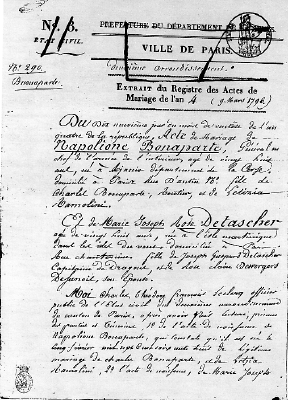 N.º 8.
ETAT CIVIL.
PRÉFECTURE DU DÉPARTEMENT
VILLE DE PARIS.
Nº 290.
Buonaparte
Deuxième arrondissement.
EXTRAIT du Registre des Actes de
Mariage de l'an 4 (9 Mars 1796)
Du Dix neuvième jour du mois de ventose de l'an
quatre de la république, Acte de Mariage de
Napolione Bonaparte, Général en
chef de l'armée de l'intérieur, âgé de vingt huit
ans, né à Ajaccio département de la Corse,
domicilié à Paris rue d'antin fils de
Charles Bonaparte, Rentier, et de Letizia
Ramolini.
Et de Marie Joseph Rose Detascher
agée de vingt huit ans, née à l'isle martinique
dans les isles du vent domiciliée à Paris
Rue chantereine fille de Joseph Gaspard Detascher
Capitaine de Dragons, et de Rose Claire Desvergers
Desanois, son Epouse.
Moi Charles Théodore françois Leclercq officier
public de l'état civil du deuxième arrondissement
du canton de Paris, après avoir fait lecture, en
des parties et témoins 1º de l'acte de naissance de
Napolione Bonaparte, qui constate qu'il est né le
cinq février mil sept cent soixante huit de légitime
mariage de Charles Bonaparte, et de Letizia
Ramolini, 2º l'acte de naissance, de Marie Joseph